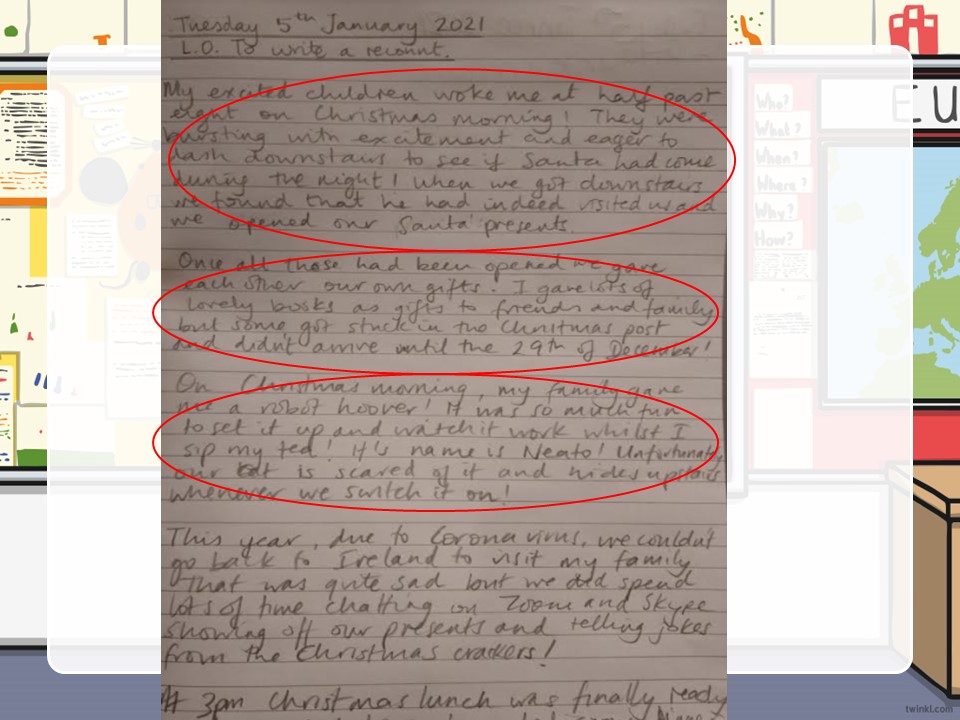 Tuesday 5th January 2021
L.O. To write a recount.
My excited children woke me at half past
eight on Christmas morning! They were
bursting with excitement and eager to
dash downstairs to see if Santa had come
during the night! When we got downstairs
we found that he had indeed visited us and
we opened our Santa presents.
Once all those had been opened we gave
each other our own gifts. I gave lots of
lovely books as gifts to friends and family
but some got stuck in the Christmas post
and didn't arrive until the 29th of December!
On Christmas morning, my family gave
me a robot hoover! It was so much fun
to set it up and watch it work whilst I
sip my tea! It's name is Neato! Unfortunately
our cat is scared of it and hides upstairs
whenever we switch it on!
This year, due to Corona virus, we couldn't
go back to Ireland to visit my family
That was quite sad but we did spend
lots of time chatting on Zoom and Skype
showing off our presents and telling jokes
from the Christmas crackers!
At 3pm Christmas lunch was finally ready
Who?
What?
When?
Where?
Why?
How?
EU
twinkl.com